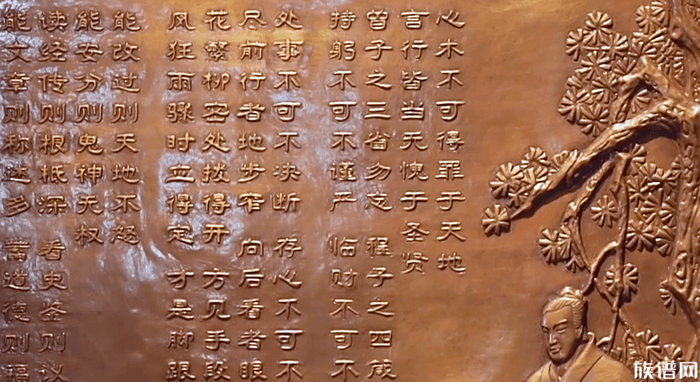 心术不可得罪于天地
言行皆当无愧于圣贤
曾子之三省勿忘 程子之四箴
持躬不可不谨严 临财不可不
处事不可不决断 存心不可不
尽前行者地步窄 向后看者眼
花繁柳密处拨得开 方见手段
风狂雨骤时立得定 才是脚跟
能改过则天地不怒
能安分则鬼神无权
读经传则根柢深 看史鉴则议
能文章则称述多 蓄道德则福
族谱网